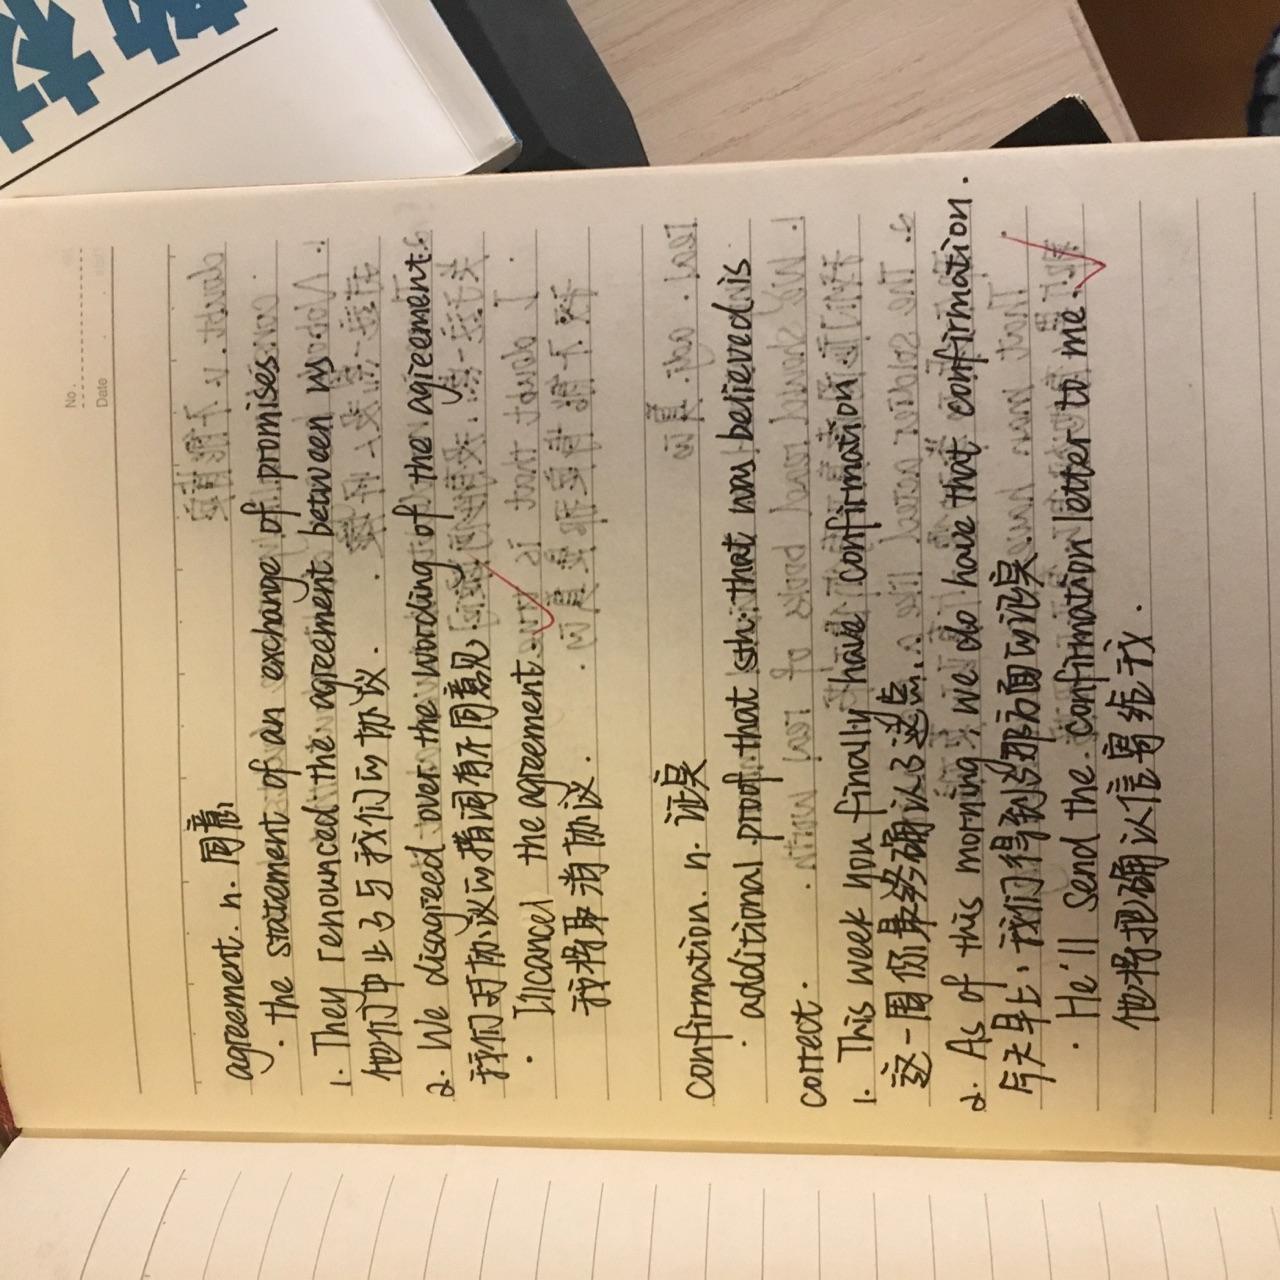 No.
Date
agreement. n. 同意
· the statement of an exchange of promises.
1. They renounced the agreement between us.
他们中止了与我们的协议.
2. We disagreed over the wording of the agreement.
我们对协议的措词有不同意见.
· I'll cancel the agreement.
我将取消协议.
confirmation. n. 证实
· additional proof that sth. that was believed is
correct.
1. This week you finally have confirmation.
这一周你最终确认了这点.
2. As of this morning, we do have that confirmation.
今天早上,我们得到了那方面的证实
· He'll send the confirmation letter to me.
他将把确认信寄给我.